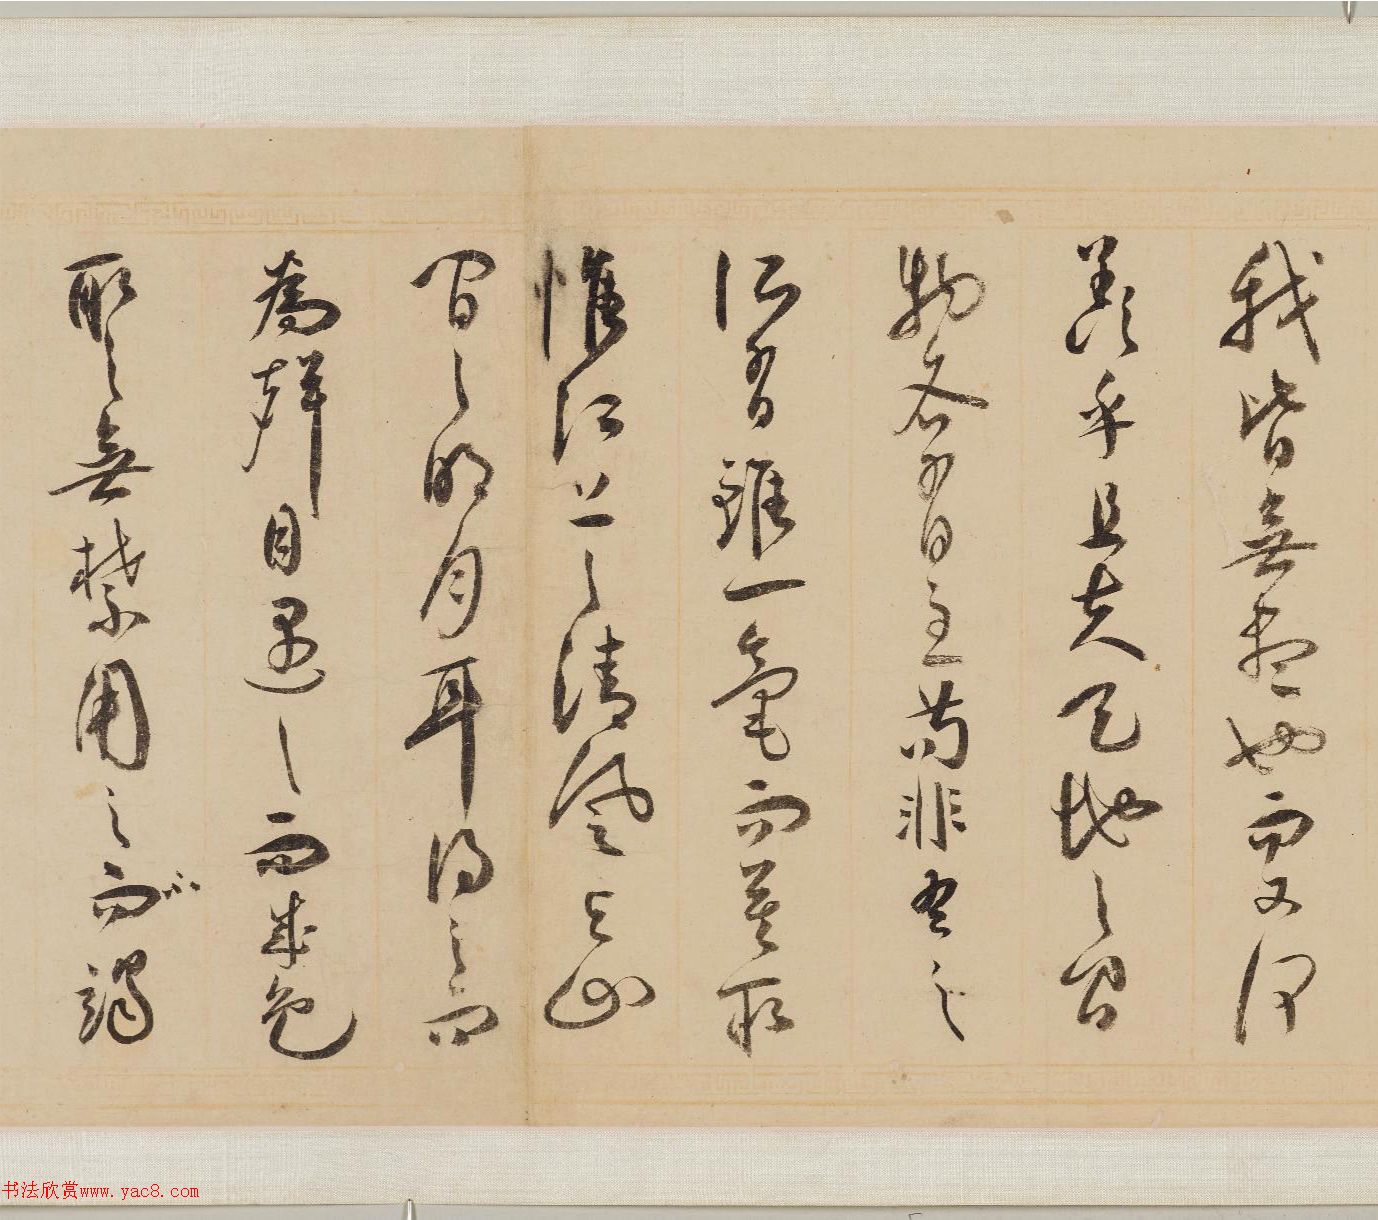 我皆無盡也而又何
羨乎且夫天地之間
物各有主苟非吾之
所有雖一毫而莫取
惟江上之清風與山
間之明月耳得之而
為聲目遇之而成色
取之無禁用之而竭
书法欣赏www.yac8.com